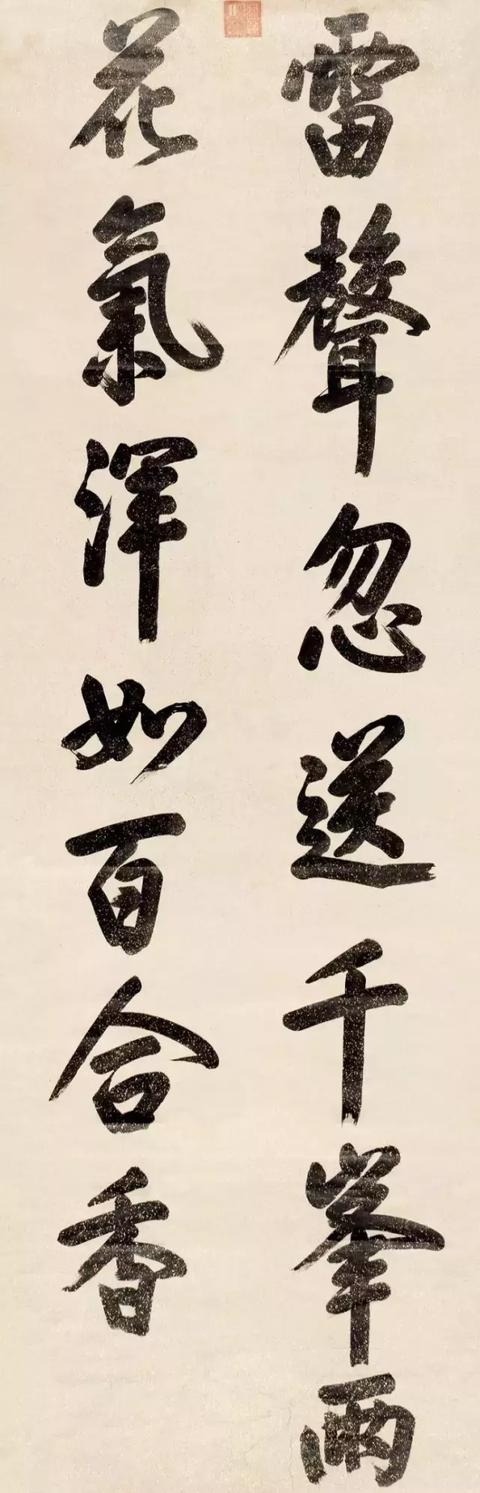 雷聲忽送千峯雨
花氣渾如百合香